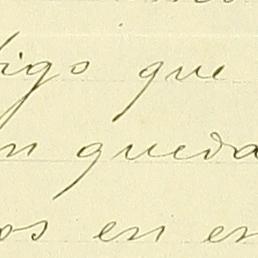 igo que
n queda
os en en